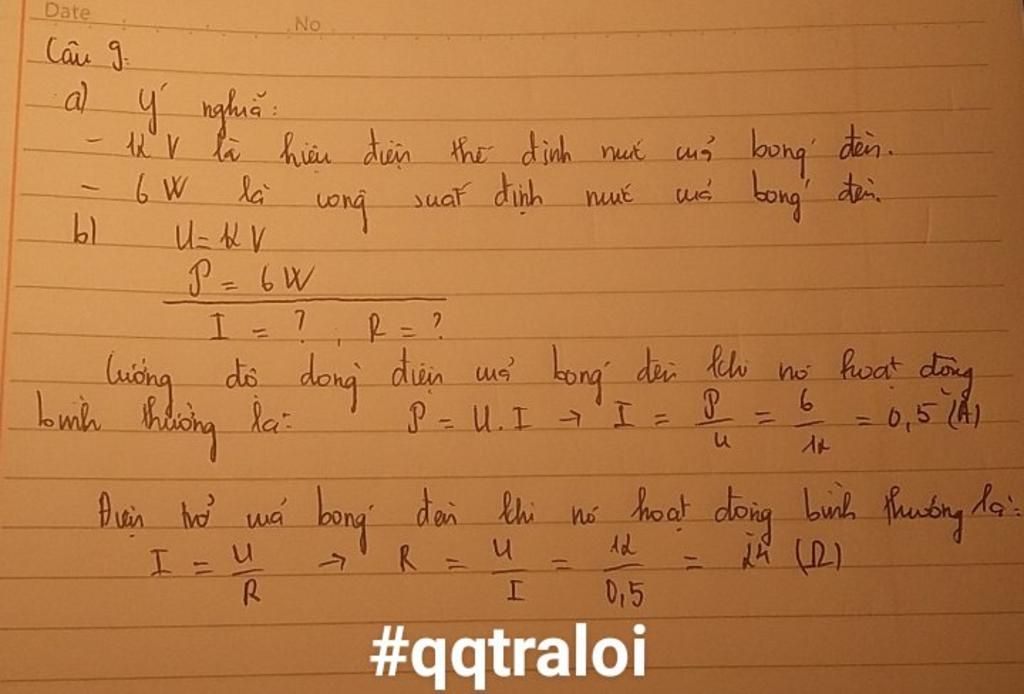 Date
No
Câu 9:
a) Ý nghĩa:
- 12 V là hiệu điện thế định mức của bóng đèn.
- 6 W là công suất định mức của bóng đèn.
b) U = 12 V
P = 6 W
I = ? , R = ?
Cường độ dòng điện của bóng đèn khi nó hoạt động
bình thường là: P = U.I → I = P/U = 6/12 = 0,5 (A)
Điện trở của bóng đèn khi nó hoạt động bình thường là:
I = U/R → R = U/I = 12/0,5 = 24 (Ω)
#qqtraloi